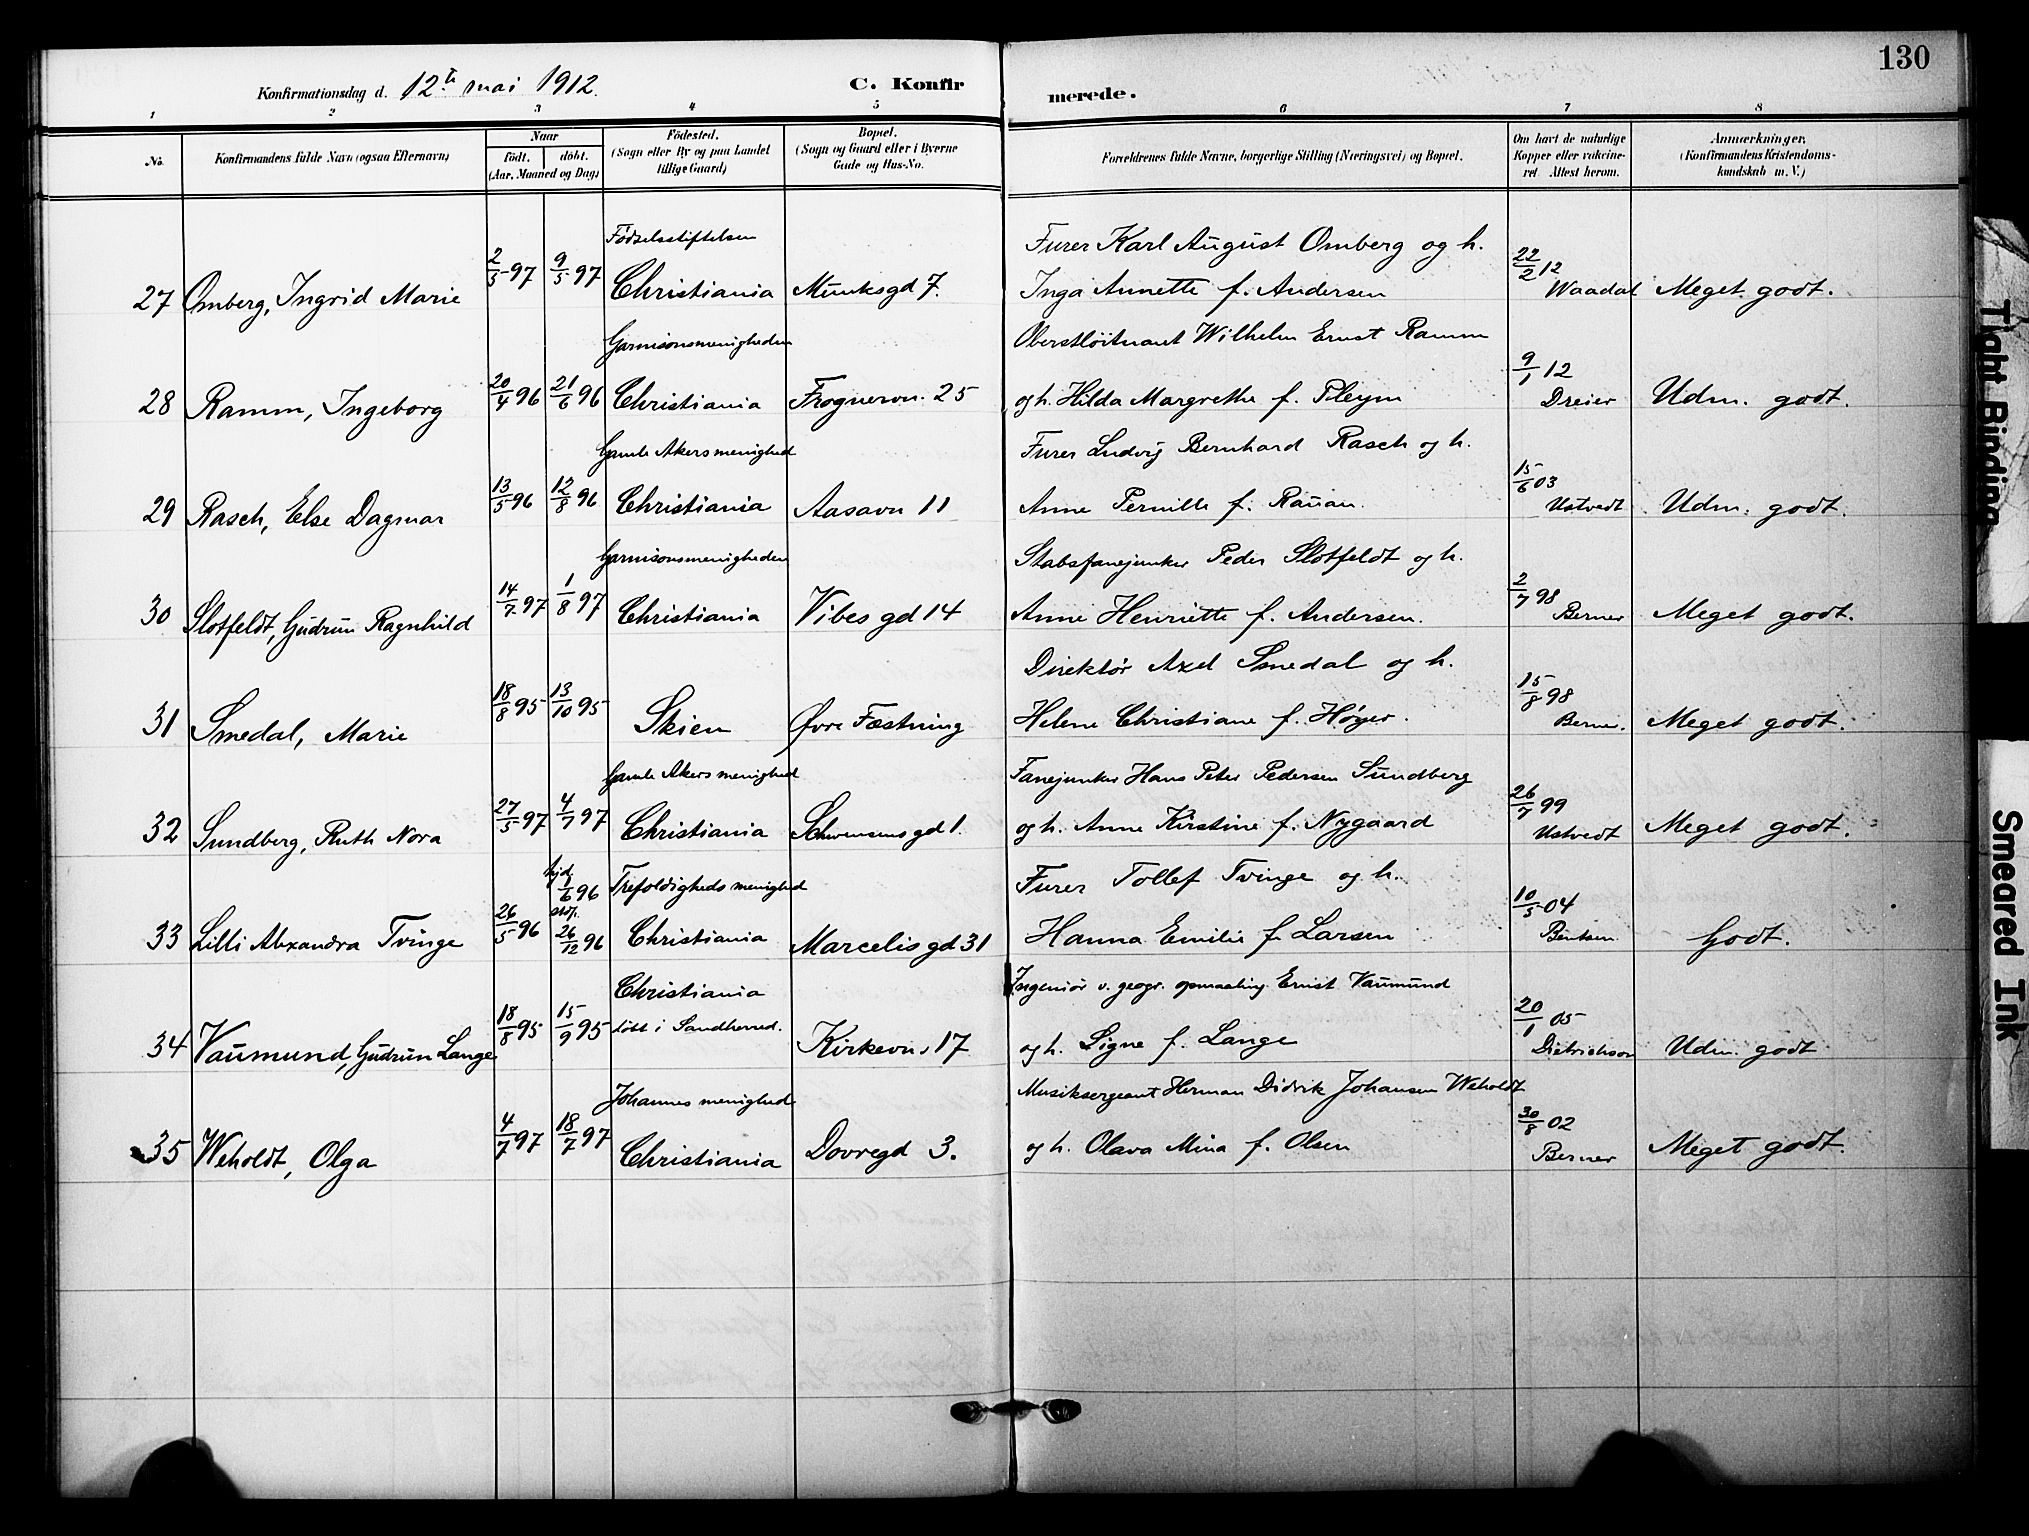 130
Konfirmationsdag d. 12te mai 1912. C. Konfirmerede.
1 2 3 4 5 6 7 8
No.
Konfirmandens fulde Navn (ogsaa Efternavn)
Naar
födt. döbt.
(Aar, Maaned og Dag)
Födested.
(Sogn eller By og paa Landet
tillige Gaard)
Bopæl.
(Sogn og Gaard eller i Byerne
Gade og Hus-No.
Forældrenes fulde Navne, borgerlige Stilling (Næringsvei) og Bopæl.
Om havt de naturlige
Kopper eller vakcine-
ret Attest herom.
Anmærkninger,
(Konfirmandens Kristendoms-
kundskab m. V.)
Fødselsstiftelsen Furer Karl August Omberg og h.
27 Omberg, Ingrid Marie 2/5 97 9/5 97 Christiania Munksgd 7. Inga Annette f. Andersen 22/2 12 Waadal Meget godt.
Garnisonsmenigheden Oberstløitnant Wilhelm Ernst Ramm
28 Ramm, Ingeborg 20/4 96 21/6 96 Christiania Frognervn. 25 og h. Hilda Margrethe f. Pleym 9/1 12 Dreier Udm. godt.
Gamle Akers menighed Furer Ludvig Bernhard Rasch og h.
29 Rasch, Else Dagmar 13/5 96 12/8 96 Christiania Aasavn 11 Anne Pernille f. Rauan. 15/6 03 Ustvedt Udm. godt.
Garnisonsmenigheden Stabsfanejunker Peder Slotfeldt og h.
30 Slotfeldt, Gudrun Ragnhild 14/7 97 1/8 97 Christiania Vibes gd 14 Anne Henriette f. Andersen. 2/7 98 Berner Meget godt.
Direktør Axel Smedal og h.
31 Smedal, Marie 18/8 95 13/10 95 Skien Øvre Fæstning Helene Christiane f. Høyer. 15/8 98 Berner. Meget godt.
Gamle Akers menighed Fanejunker Hans Peter Pedersen Sundberg
32 Sundberg, Ruth Nora 27/5 97 4/7 97 Christiania Schwensens gd 1. og h. Anne Kirstine f. Nygaard 26/7 99 Ustvedt Meget godt.
hjd. 1/6 96 Trefoldigheds menighed Furer Tollef Tvinge og h.
33 Lilli Alexandra Tvinge 26/5 96 stdf. 26/12 96 Christiania Marcelis gd 31 Hanna Emilie f. Larsen 10/5 04 Bentsen Godt.
Christiania Ingeniør v. geogr. opmaaling Ernst Vaumund
34 Vaumund, Gudrun Lange 18/8 95 15/9 95 døbt i Sandherred. Kirkevn. 17 og h. Signe f. Lange 20/1 05 Dietrichson Udm. godt
Johannes menighed Musiksergeant Herman Didrik Johansen Weholdt
35 Weholdt, Olga 4/7 97 18/7 97 Christiania Dovregd 3. og h. Olava Mina f. Olsen 30/8 02 Berner Meget godt.
Tight Binding
Smeared Ink